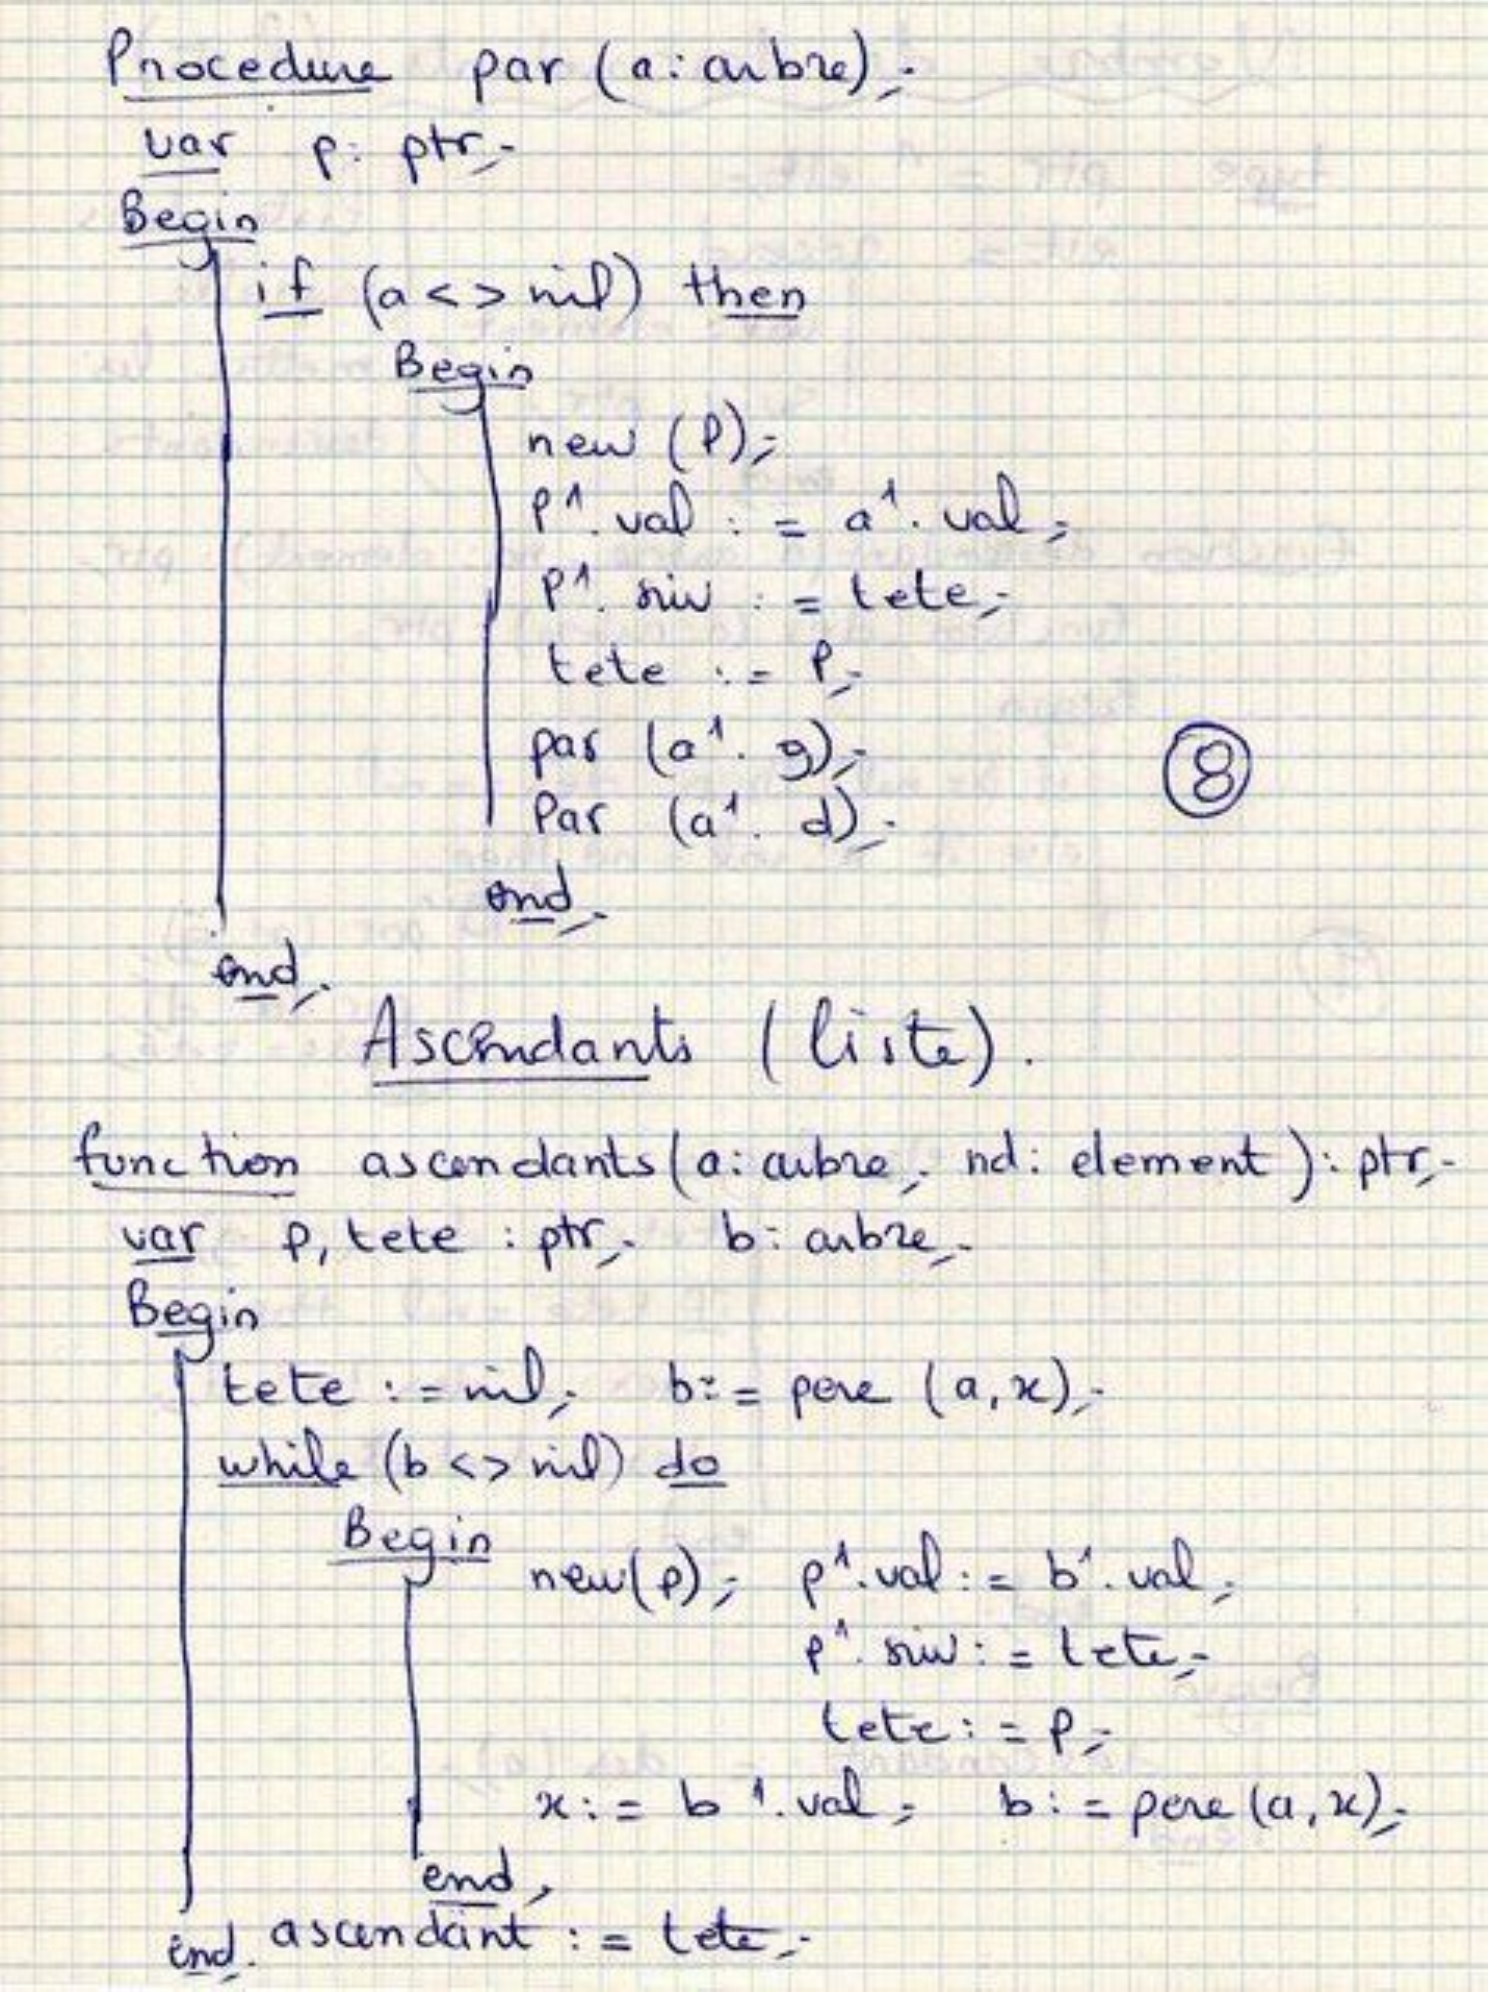 Procedure par (a: arbre);
var p: ptr;
Begin
if (a <> nil) then
Begin
new (P);
P^. val := a^. val;
P^. suiv := tete;
tete := P;
par (a^. g);
Par (a^. d);
end;
end;
8
Ascendants (liste).
function ascendants (a: arbre; nd: element): ptr;
var p, tete : ptr; b: arbre;
Begin
tete := nil; b:= pere (a, x);
while (b <> nil) do
Begin
new(p); p^.val := b^.val;
p^. suiv := tete;
tete := p;
x := b^.val; b := pere (a, x);
end;
ascendant := tete;
end.